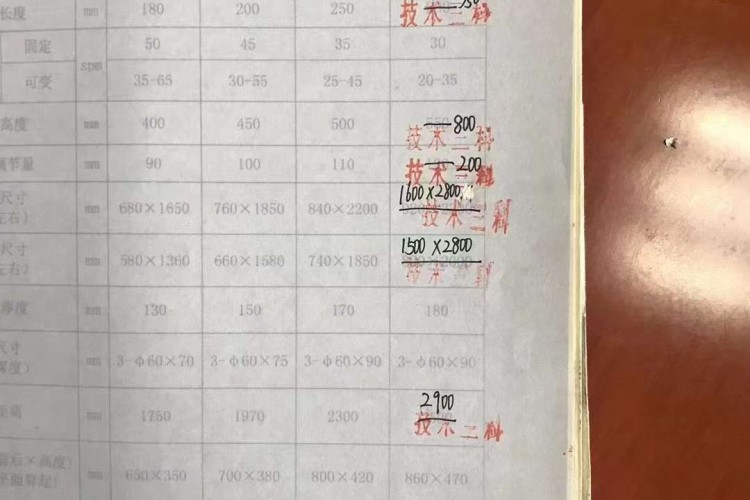 长度 mm 180 200 250
技术二科
固定 spm 50 45 35 30
可变 35-65 30-55 25-45 20-35
高度 mm 400 450 500 800
技术二科
调节量 mm 90 100 110 200
技术二科
尺寸 1600×2800
左右) mm 680×1650 760×1850 840×2200
技术二科
尺寸 1500×2800
左右) mm 580×1360 660×1580 740×1850
技术二科
厚度 mm 130 150 170 180
尺寸
深度) mm 3-φ60×70 3-φ60×75 3-φ60×90 3-φ60×90
距离 mm 1750 1970 2300 2900
技术二科
前后×高度)
mm 650×350 700×380 800×420 860×470